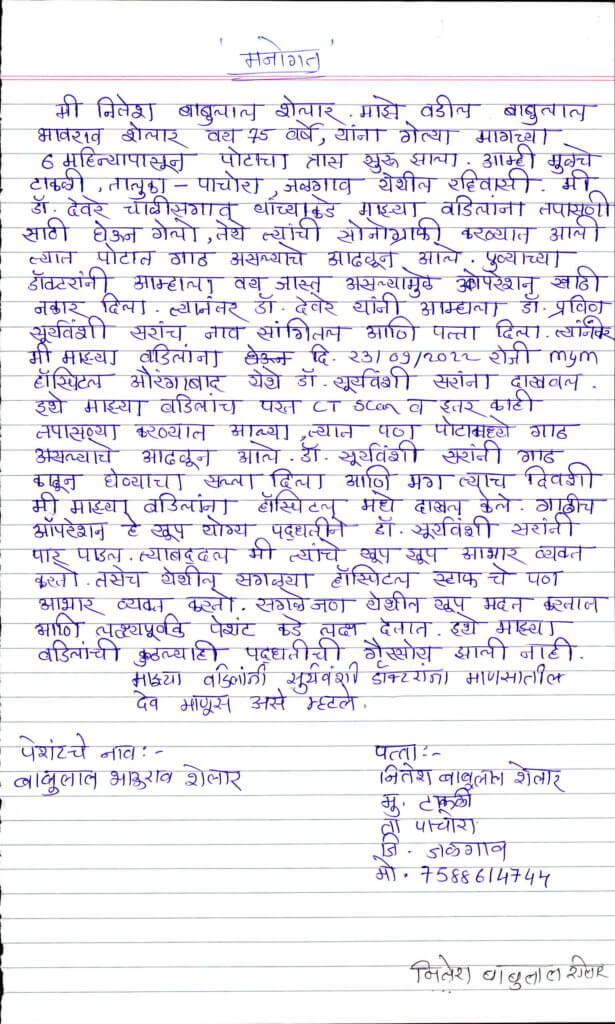 ' मनोगत '
मी नितेश बाबुलाल शेलार. माझे वडील बाबुलाल
भावराव शेलार वय 75 वर्षे, यांना गेल्या मागच्या
6 महिन्यापासून पोटाचा त्रास सुरू झाला. आम्ही मुळचे
टाकळी, तालुका - पाचोरा, जळगाव येथील रहिवासी. मी
डॉ. देवरे चाळीसगाव यांच्याकडे माझ्या वडिलांना तपासणी
साठी घेऊन गेलो, तेथे त्यांची सोनोग्राफी करण्यात आली
त्यात पोटात गाठ असल्याचे आढळून आले. पुण्याच्या
डॉक्टरांनी आम्हाला वय जास्त असल्यामुळे ऑपरेशन साठी
नकार दिला. त्यानंतर डॉ. देवरे यांनी आम्हाला डॉ. प्रविण
सूर्यवंशी सरांच नाव सांगितल आणि पत्ता दिला. त्यांनंतर
मी माझ्या वडिलांना घेऊन दि. 23/09/2022 रोजी MGM
हॉस्पिटल औरंगाबाद येथे डॉ. सूर्यवंशी सरांना दाखवल.
इथे माझ्या वडिलांच परत CT Scan व इतर काही
तपासण्या करण्यात आल्या, त्यात पण पोटामध्ये गाठ
असल्याचे आढळून आले. डॉ. सूर्यवंशी सरांनी गाठ
काढून घेण्याचा सल्ला दिला आणि मग त्याच दिवशी
मी माझ्या वडिलांना हॉस्पिटल मधे दाखल केले. गाठीच
ऑपरेशन हे खूप योग्य पद्धतीने डॉ. सूर्यवंशी सरांनी
पार पाडल. त्याबद्दल मी त्यांचे खूप खूप आभार व्यक्त
करतो. तसेच येथील सगळ्या हॉस्पिटल स्टाफ चे पण
आभार व्यक्त करतो. सगळेजण येथील खूप मदत करतात
आणि लक्ष्यपूर्वक पेशंट कडे लक्ष देतात. इथे माझ्या
वडिलांची कुठल्याही पद्धतीची गैरसोय झाली नाही.
माझ्या वडिलांनी सुर्यवंशी डॉक्टरांना माणसातील
देव माणूस असे म्हटले.
पेशंटचे नाव :-
बाबुलाल भाऊराव शेलार
पत्ता :-
नितेश बाबुलाल शेलार
मु. टाकळी
ता पाचोरा
जि. जळगाव
मो. 7588614744
नितेश बाबुलाल शेलार